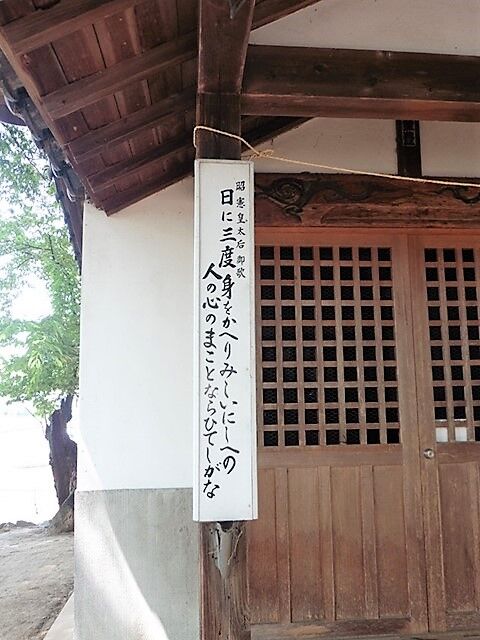 昭憲皇太后御歌
日に三度身をかへりみしいにしへの
人の心のまことならひてしがな